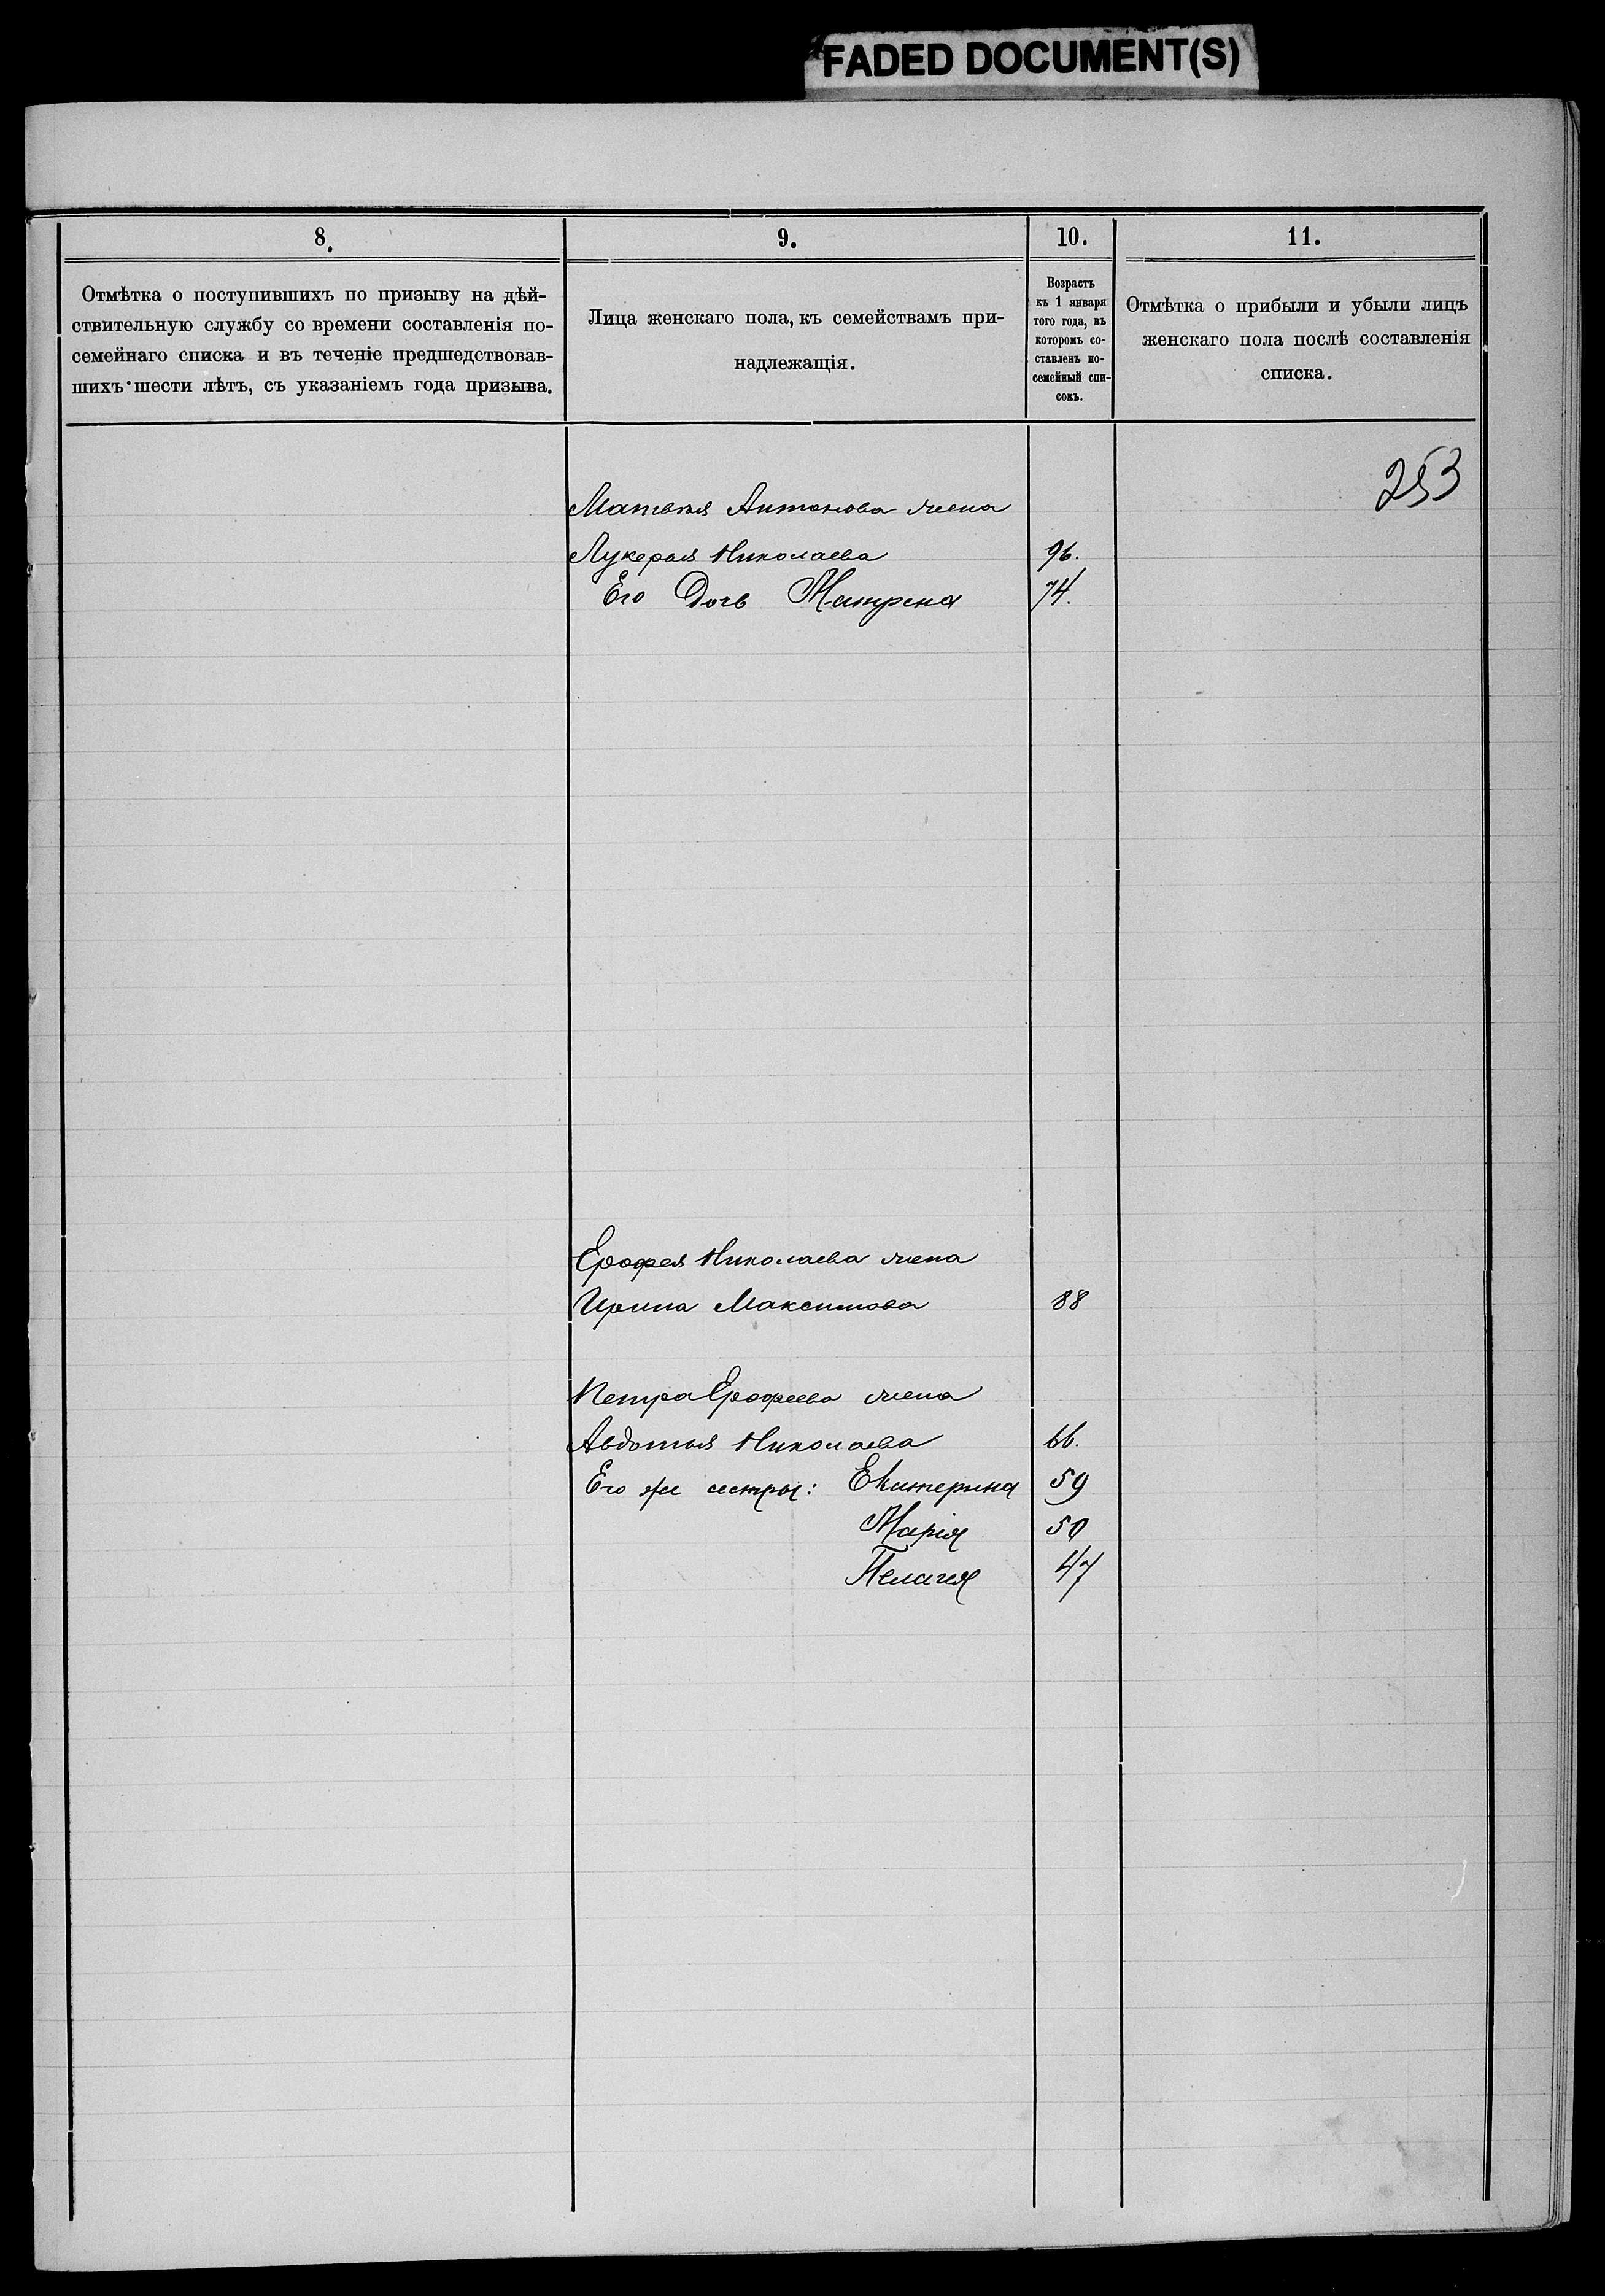 FADED DOCUMENT(S)
8.
9.
10.
11.
Отмѣтка о поступившихъ по призыву на дѣй-
ствительную службу со времени составленія по-
семейнаго списка и въ теченіе предшедствовав-
шихъ шести лѣтъ, съ указаніемъ года призыва.
Лица женскаго пола, къ семействамъ при-
надлежащія.
Возрастъ
къ 1 января
того года, въ
которомъ со-
ставленъ по-
семейный спи-
сокъ.
Отмѣтка о прибыли и убыли лицъ
женскаго пола послѣ составленія
списка.
253
Матвѣя Антонова жена
Лукерья Николаева 96.
Его Дочь Матрена 74.
Ерофея Николаева жена
Ирина Максимова 88
Петра Ерофеева жена
Авдотья Николаева 66.
Его же сестры: Екатерина 59
Марія 50
Пелагея 47